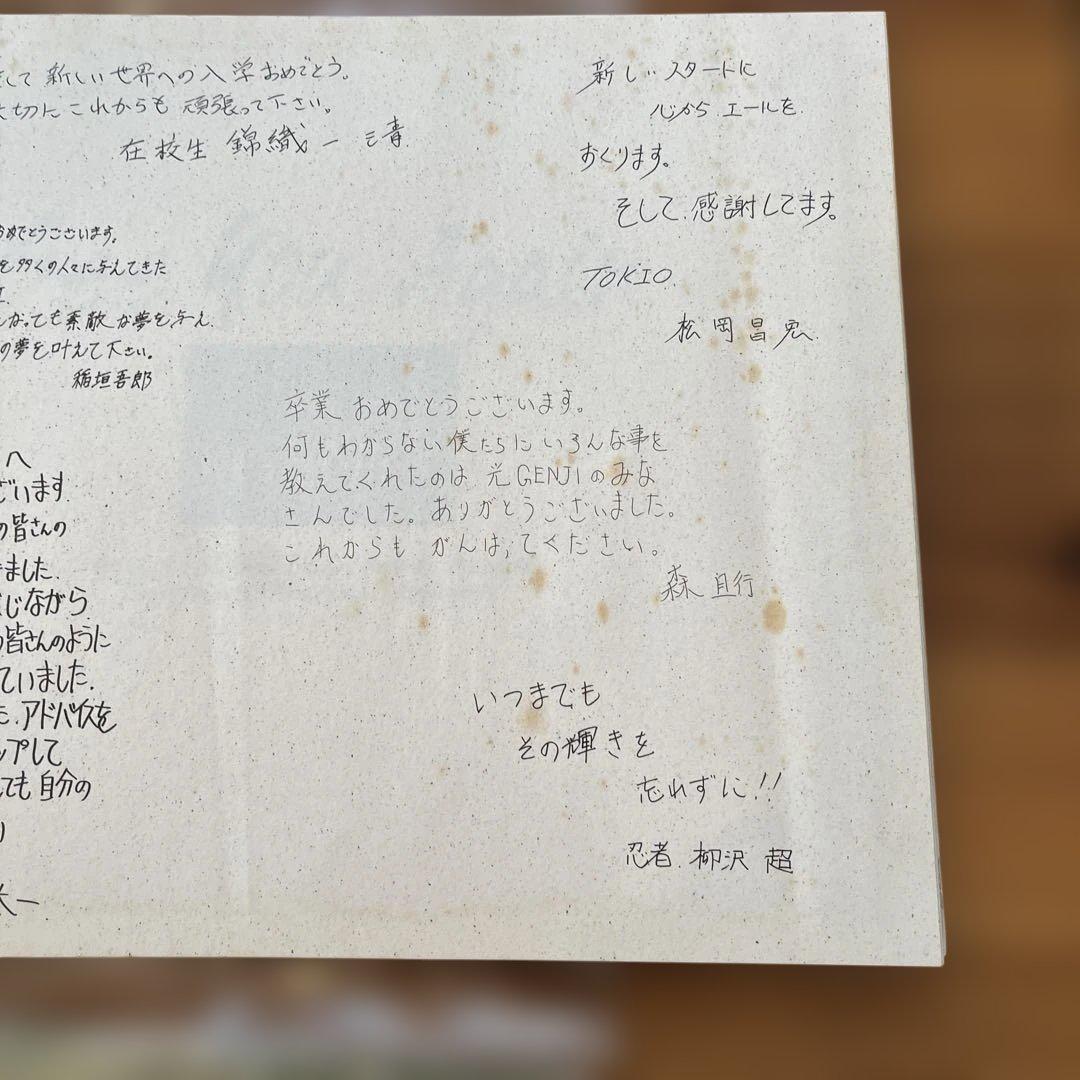 して 新しい世界への入学おめでとう。
切にこれからも 頑張って下さい。
在校生 錦織一清
おめでとうございます。
を多くの人々に与えてきた
なっても素敵な夢を与え
の夢を叶えて下さい。
稲垣吾郎
へ
ざいます
の皆さんの
きました.
じながら
皆さんのように
ていました.
た.アドバイスを
ップして
ても自分の
り
一
新しいスタートに
心から エールを
おくります。
そして、感謝してます。
TOKIO
松岡昌宏
卒業 おめでとうございます。
何もわからない僕たちにいろんな事を
教えてくれたのは 光GENJIのみな
さんでした。ありがとうございました。
これからも がんばってください。
森 且行
いつまでも
その輝きを
忘れずに!!
忍者 柳沢 超